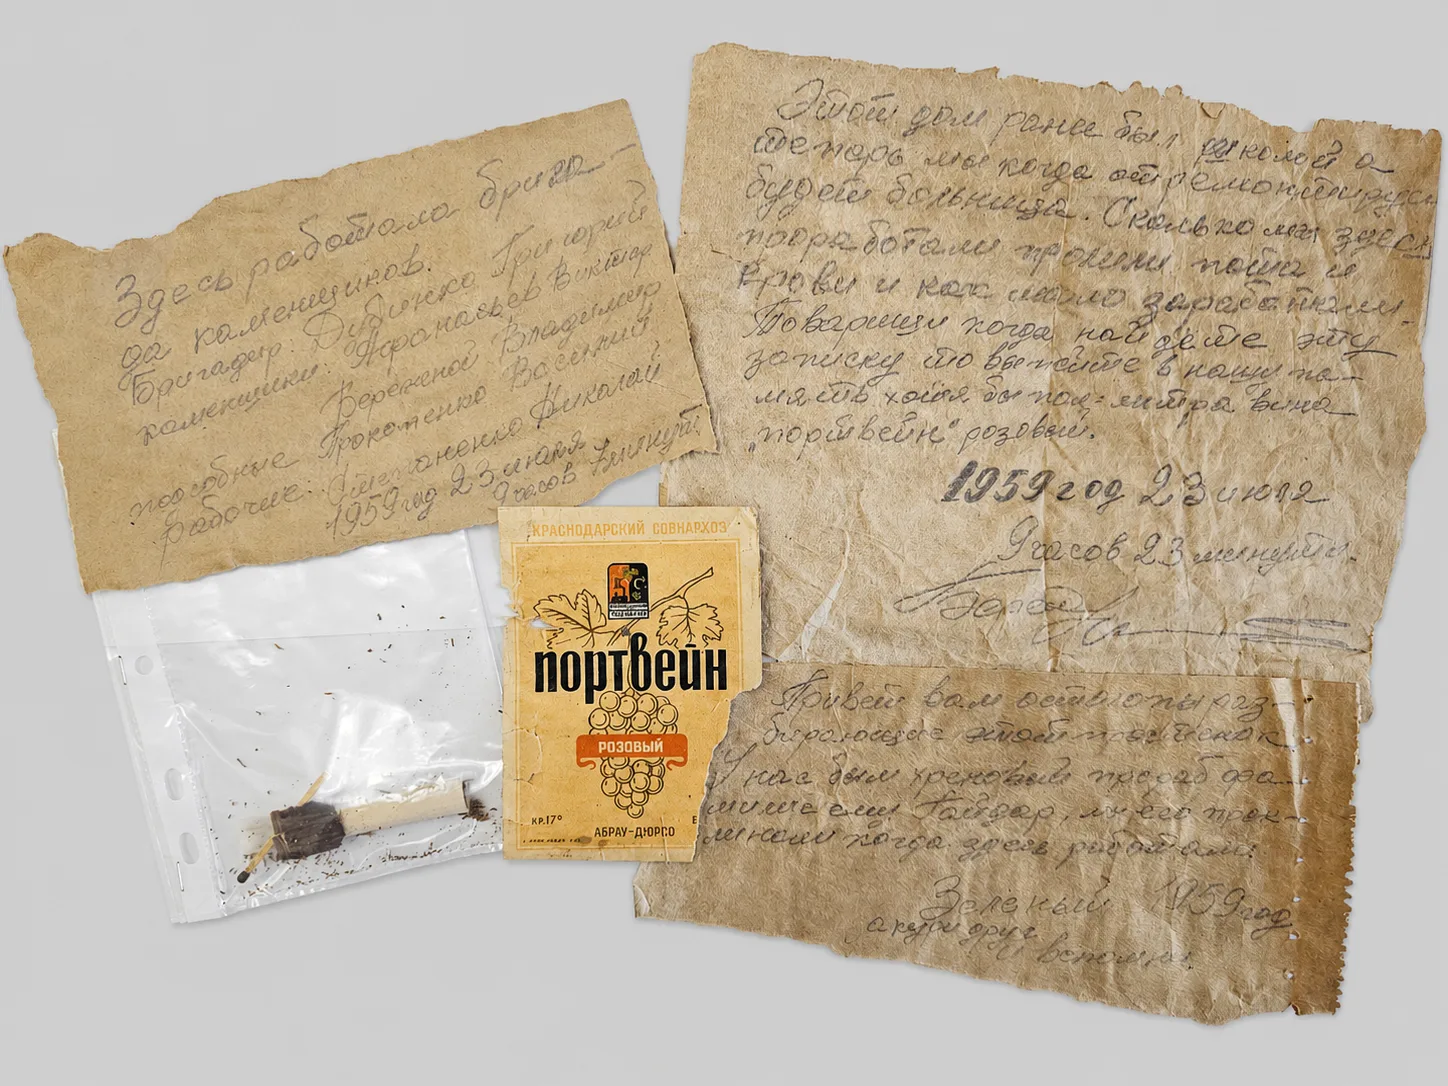 Здесь работала брига-
да каменщиков.
Бригадир: Дибенко Григорий
каменщики: Афанасьев Виктор
Бережной Владимир
подсобные Прокопенко Василий
рабочие: Степаненко Николай
1959 год 23 июля
9 часов 7 минут.
Этот дом ранее был школой а
теперь мы когда отремонтируем
будет больница. Сколько мы здесь
поработали пролили пота и
крови и как мало заработали.
Товарищи когда найдете эту
записку то выпейте в нашу па-
мять хотя бы пол-литра вина
„портвейн" розовый.
1959 год 23 июля
9 часов 23 минуты.
КРАСНОДАРСКИЙ СОВНАРХОЗ
ПОРТВЕЙН
РОЗОВЫЙ
КР.17°
АБРАУ-ДЮРСО
Привет вам остолопы раз-
бирающие этот простенок
У нас был хреновый прораб фа-
милие ему Гайдар, мы его прок-
линали когда здесь работали.
Зеленый 1959 год
а кури друг
и вспомни